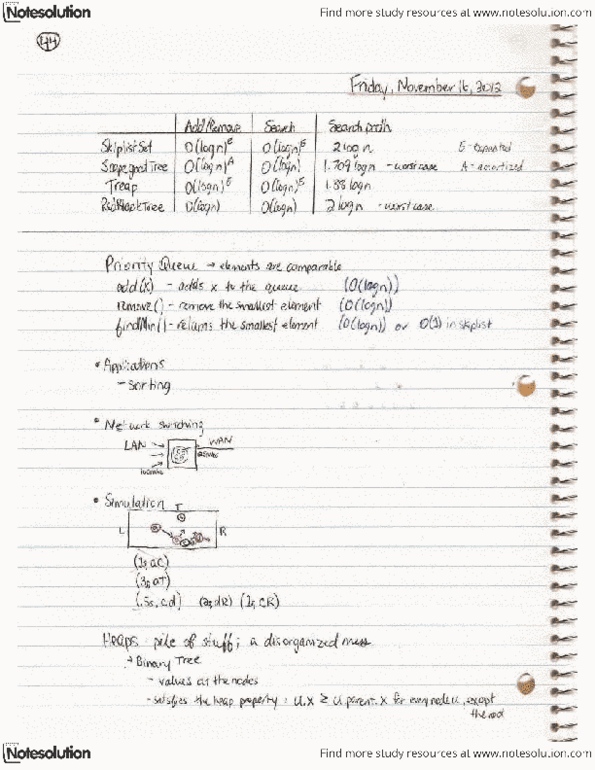 Notesolution Find more study resources at www.notesolution.com
44
Friday, November 16, 2012
Add/Remove Search Search path
SkiplistSet O(logn)^E O(logn)^E 2logn E-expected
ScapegoatTree O(logn)^A O(logn) 1.709 logn - worst case A-amortized
Treap O(logn)^E O(logn)^E 1.88 logn
RedBlackTree O(logn) O(logn) 2 logn - worst case
Priority Queue → elements are comparable
add(x) - adds x to the queue (O(logn))
remove() - remove the smallest element (O(logn))
findMin() - returns the smallest element (O(logn)) or O(1) in skiplist
• Applications
- Sorting
• Network switching
LAN WAN
• Simulation
T
L R
(1s, a, C)
(3s, a, T)
(.5s, c, d) (2s, d, R) (1s, c, R)
Heaps: pile of stuff; a disorganized mess
→ Binary Tree
- values on the nodes
- satisfies the heap property: u.x ≥ u.parent.x for every node u, except
the root
Notesolution Find more study resources at www.notesolution.com